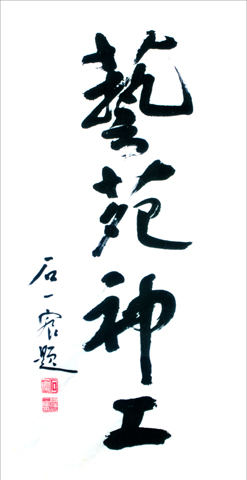 藝苑神工
石一宸題